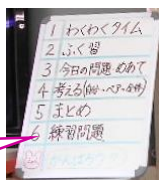 1 わくわくタイム
2 ふく習
3 今日の問題 めあて
4 考える(自分・ペア・全体)
5 まとめ
6 練習問題